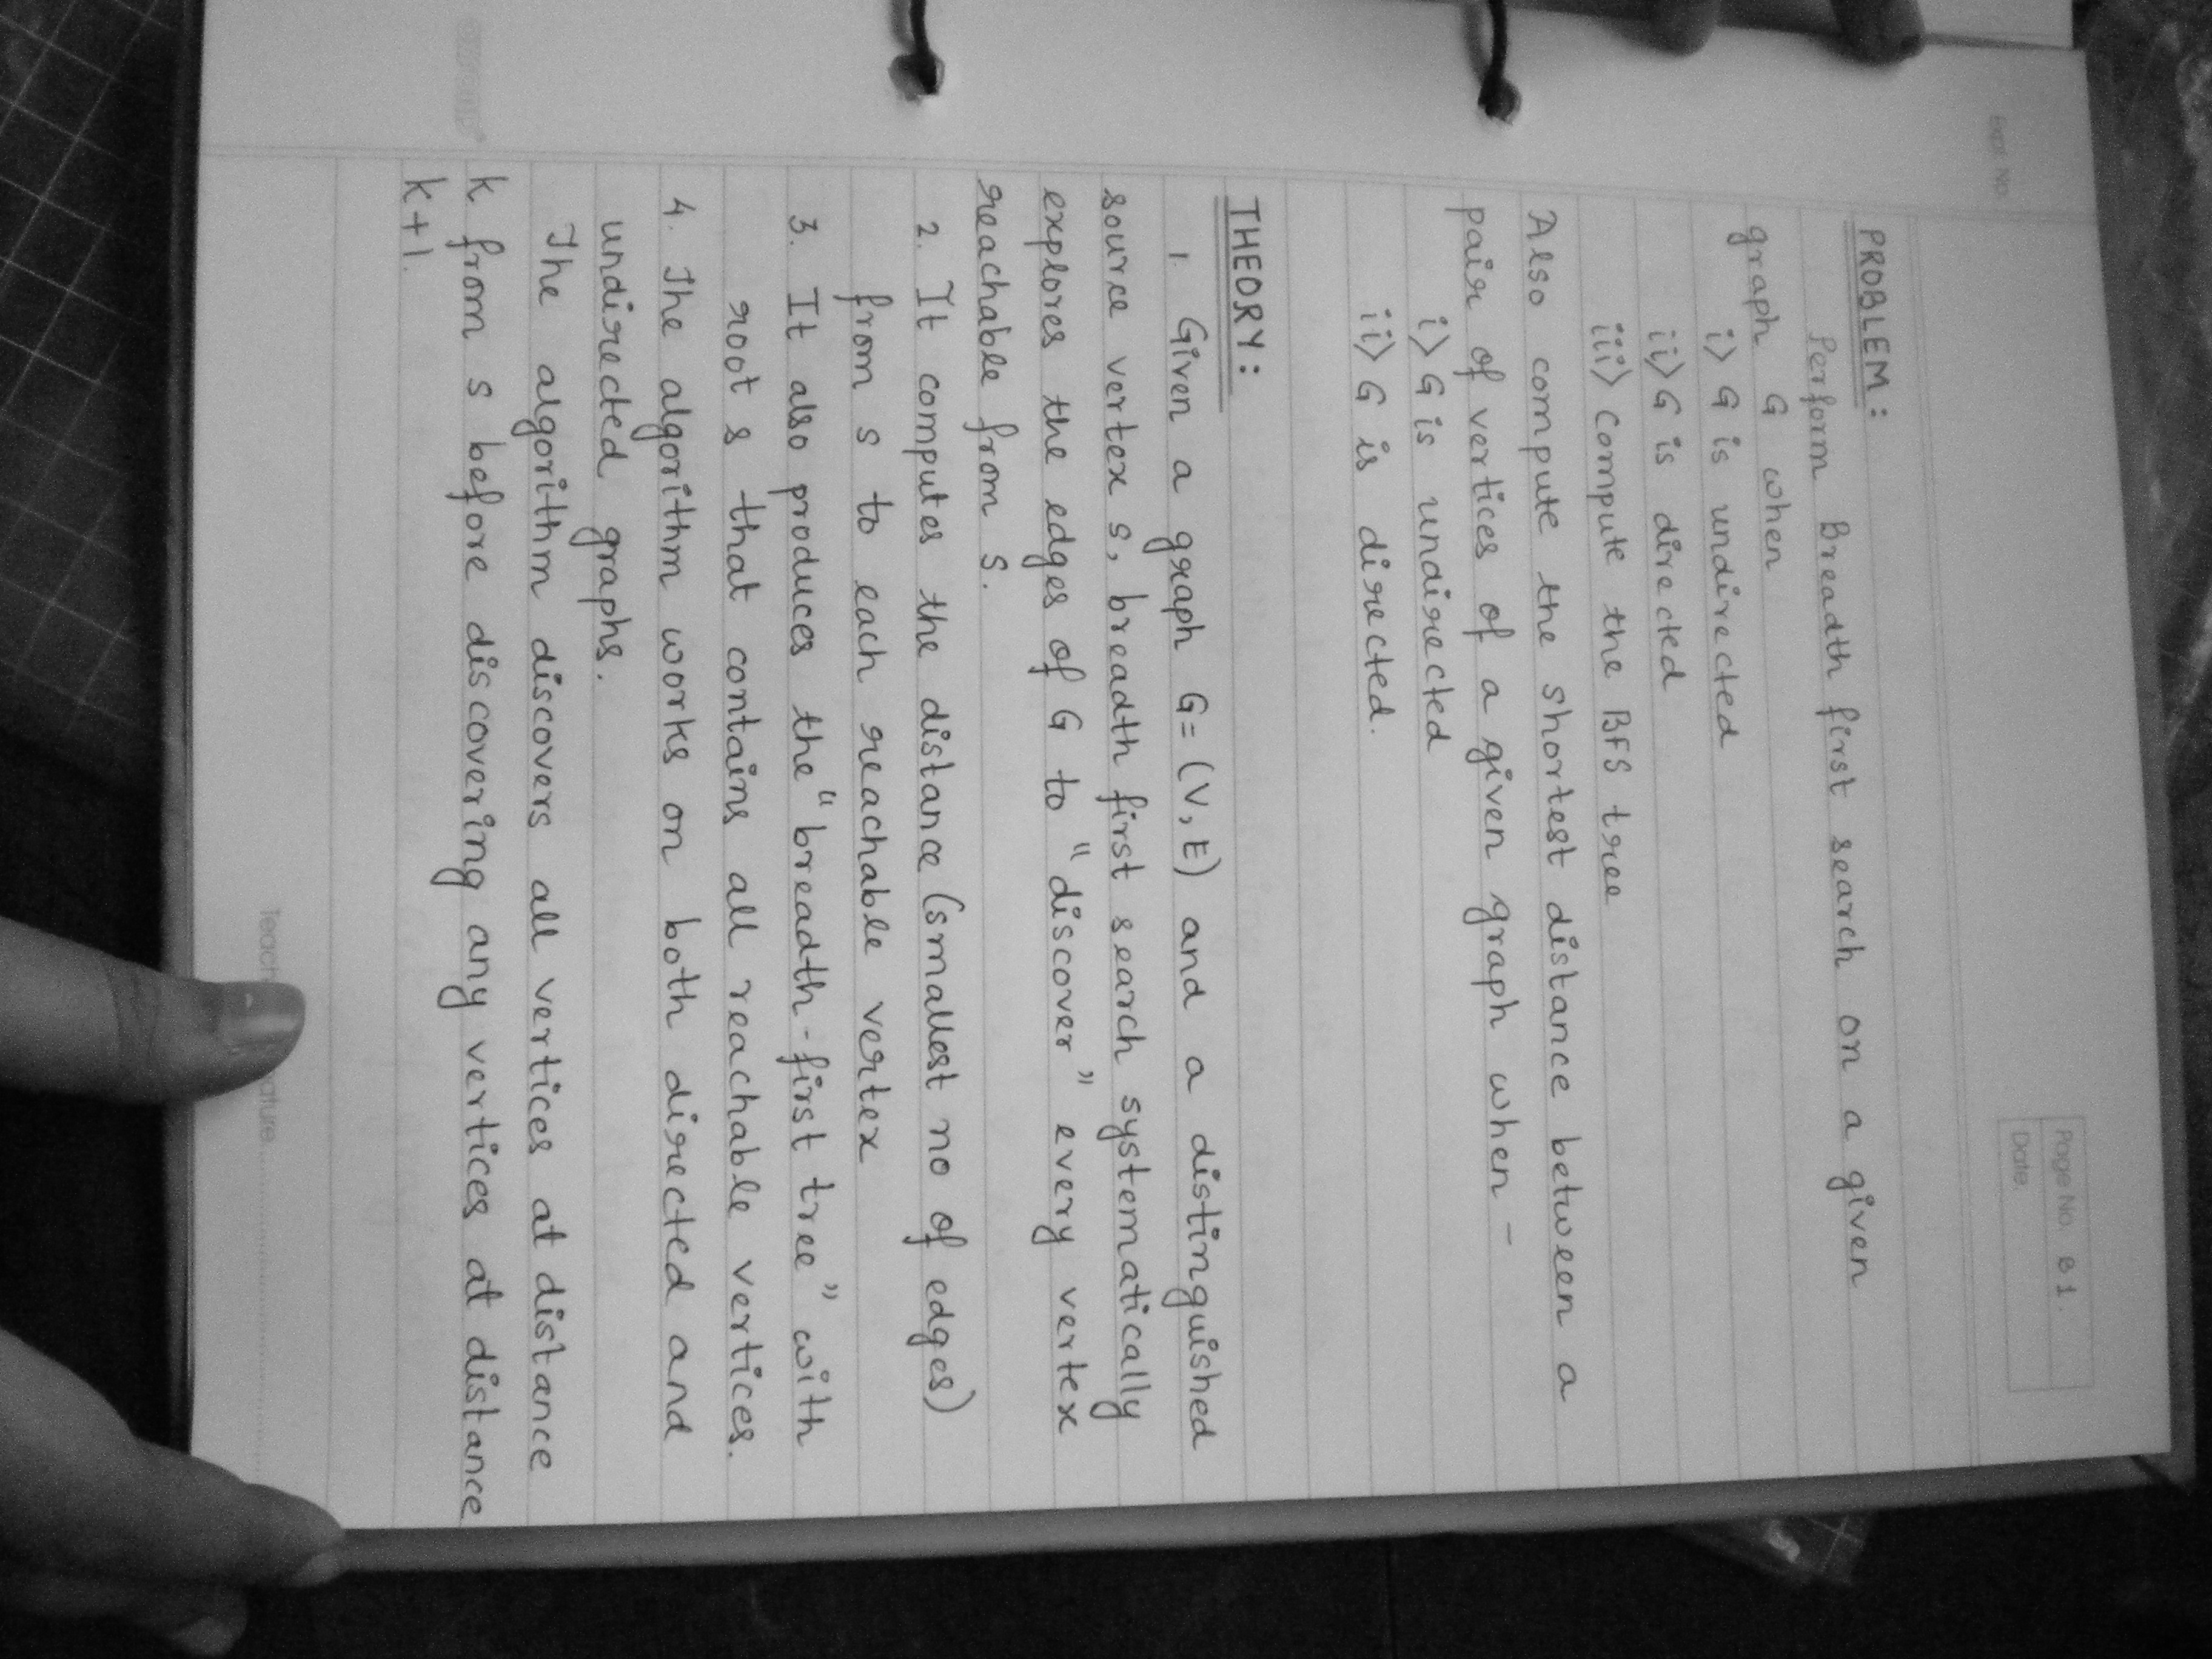 Expt. No.
Page No. B1.
Date.
PROBLEM:
Perform Breadth first search on a given
graph G when
i> G is undirected
ii> G is directed
iii> compute the BFS tree
Also compute the shortest distance between a
pair of vertices of a given graph when -
i> G is undirected
ii> G is directed.
THEORY:
1. Given a graph G = (V, E) and a distinguished
source vertex s, breadth first search systematically
explores the edges of G to "discover" every vertex
reachable from S.
2. It computes the distance (smallest no of edges)
from s to each reachable vertex
3. It also produces the "breadth-first tree" with
root s that contains all reachable vertices.
4. The algorithm works on both directed and
undirected graphs.
The algorithm discovers all vertices at distance
k from s before discovering any vertices at distance
k+1.